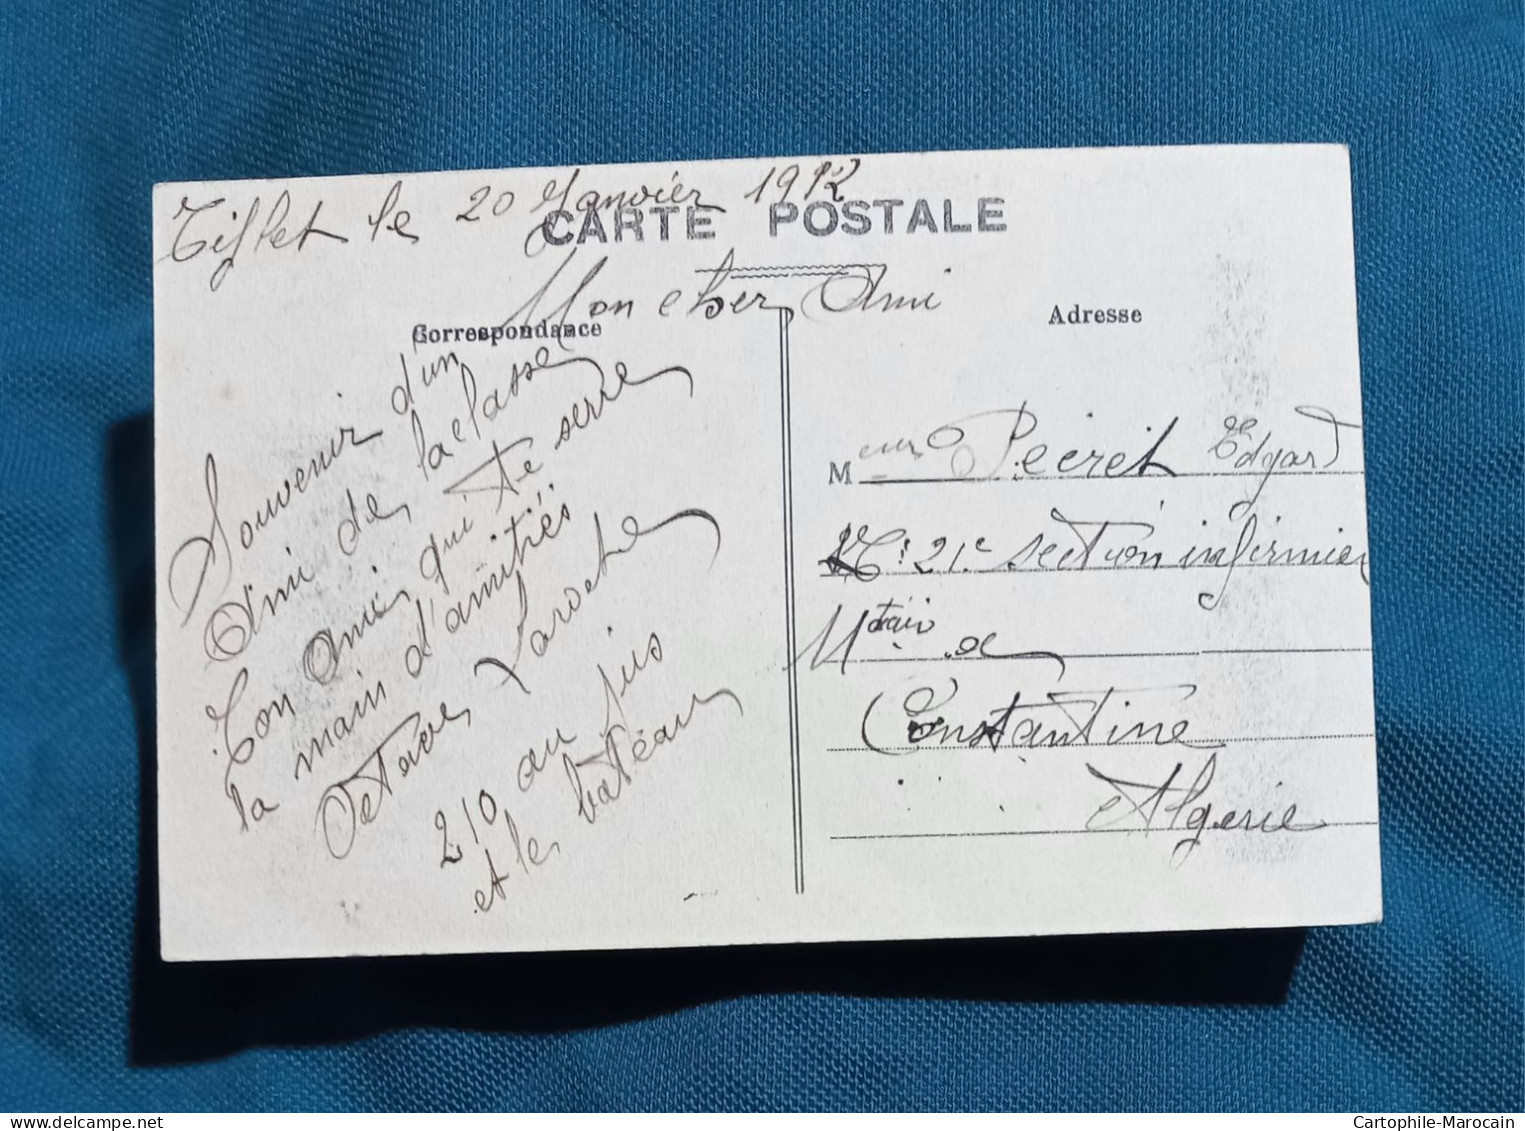 Tiflet le 20 Janvier 1912
CARTE POSTALE
Mon cher Ami
Correspondance
Adresse
Souvenir d'un
Ami de la classe
Ton Ami qui te serre
la main d'amitiés
Octave Laroche
210 au jus
et le batéau
Meur Pecret Edgard
21e section infirmier
Mtair de
Constantine
Algerie
Cartophile-Marocain